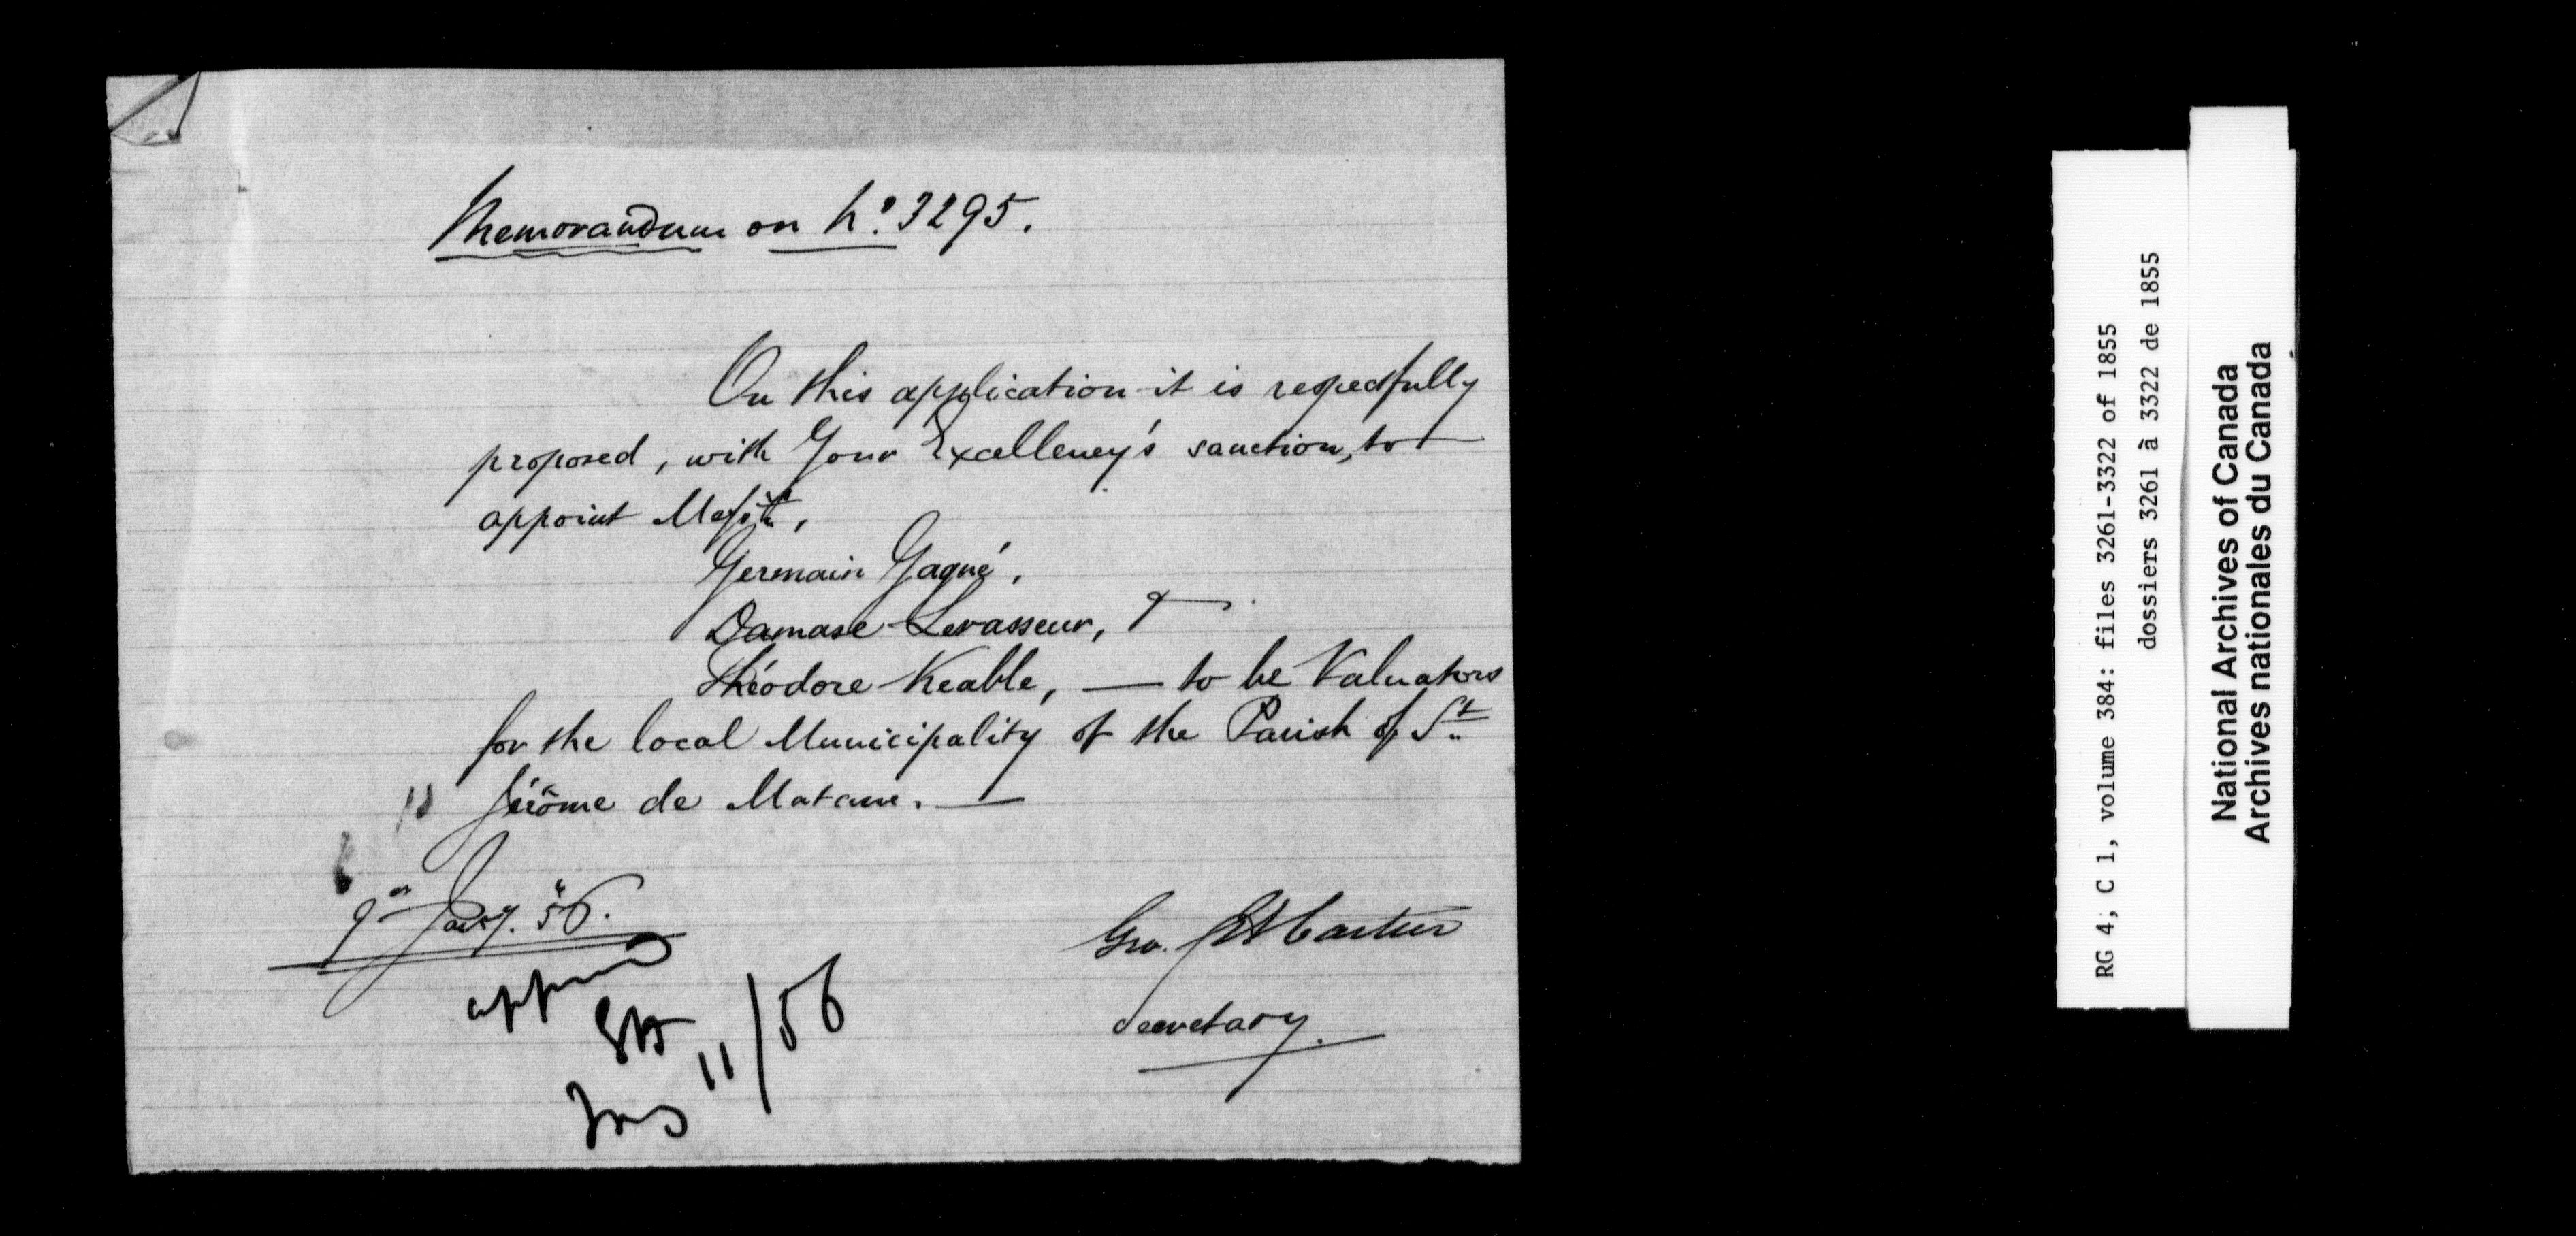 Memorandum on No. 3295.
On this application it is respectfully
proposed, with Your Excellency's sanction, to
appoint Messrs,
Germain Gagné,
Damase Levasseur, &
Théodore Keable, — to be Valuators
for the local Municipality of the Parish of St.
Jérôme de Matane. —
9 Jany. 56.
Geo. Et Cartier
Secretary.
appd
11/56
RG 4, C 1, volume 384: files 3261-3322 of 1855
dossiers 3261 à 3322 de 1855
National Archives of Canada
Archives nationales du Canada